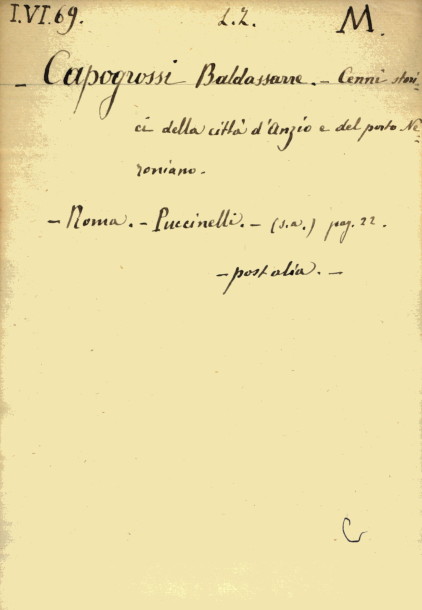 I.VI.69. L.L. M.
- Capogrossi Baldassarre. - Cenni stori=
ci della città d'Anzio e del porto Ne=
roniano.
- Roma. - Puccinelli. - (s.a.) pag. 22.
- post alia. -
C